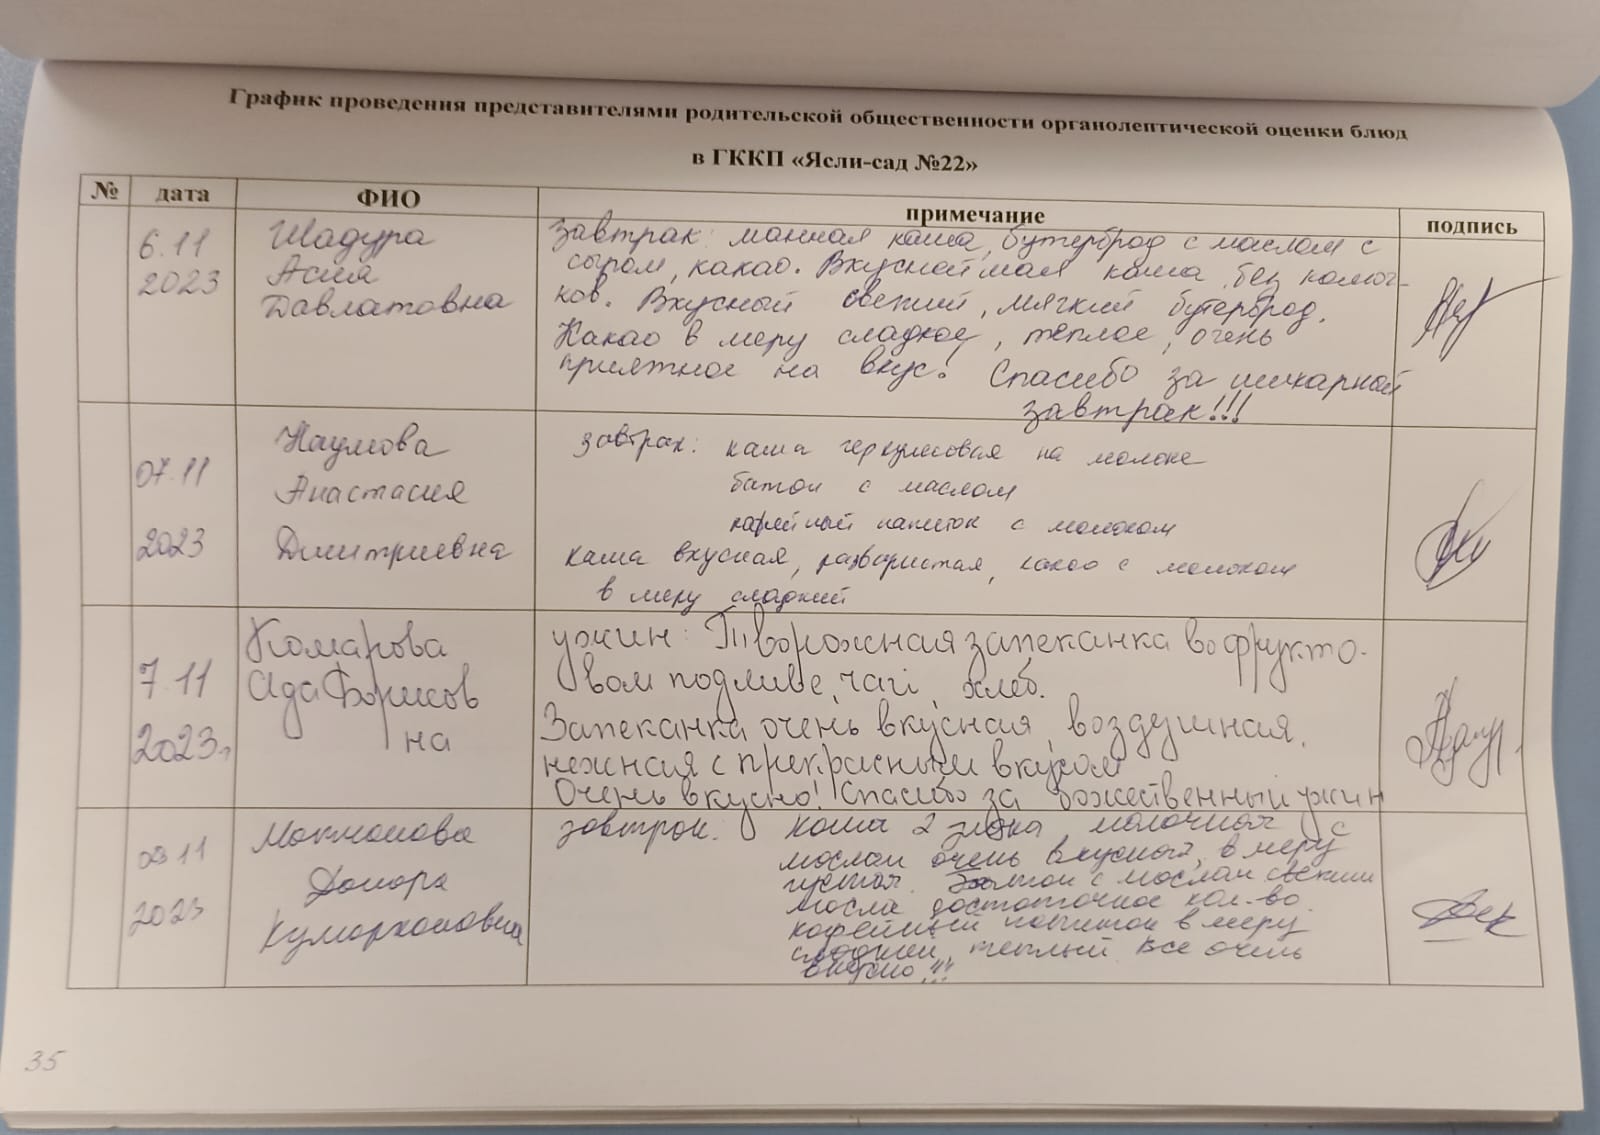 График проведения представителями родительской общественности органолептической оценки блюд
в ГККП «Ясли-сад №22»
№ дата ФИО примечание подпись
6.11
2023
Шадура
Асия
Давлатовна
завтрак: манная каша, бутерброд с маслом с
сыром, какао. Вкусная каша без комоч-
ков. Вкусный свежий, мягкий бутерброд.
Какао в меру сладкое, теплое, очень
приятное на вкус! Спасибо за шикарный
завтрак!!!
07.11
2023
Наумова
Анастасия
Дмитриевна
завтрак: каша геркулесовая на молоке
батон с маслом
кофейный напиток с молоком
каша вкусная, разваристая, какао с молоком
в меру сладкий
7.11
2023г
Комарова
Ада Борисов
на
ужин: Творожная запеканка во фрукто-
вом подливе, чай, хлеб.
Запеканка очень вкусная, воздушная,
нежная с прекрасным вкусом
Очень вкусно! Спасибо за божественный ужин
09.11
2023
Донора
завтрак: каша 2 злака молочная с
маслом очень вкусной, в меру
густая. Батон с маслом свежий
масла достаточное кол-во.
кофейный напиток в меру
сладкий, теплый. Все очень
вкусно!!!
35